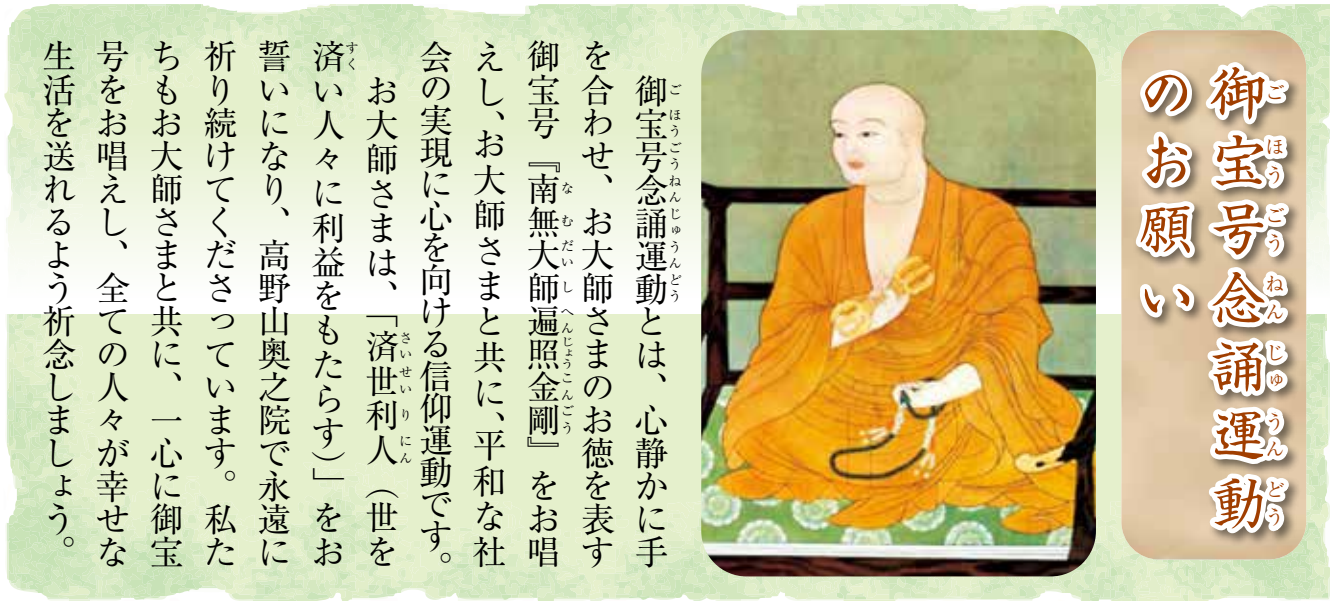 御宝号念誦運動
のお願い
御宝号念誦運動とは、心静かに手
を合わせ、お大師さまのお徳を表す
御宝号『南無大師遍照金剛』をお唱
えし、お大師さまと共に、平和な社
会の実現に心を向ける信仰運動です。
お大師さまは、「済世利人（世を
済い人々に利益をもたらす）」をお
誓いになり、高野山奥之院で永遠に
祈り続けてくださっています。私た
ちもお大師さまと共に、一心に御宝
号をお唱えし、全ての人々が幸せな
生活を送れるよう祈念しましょう。